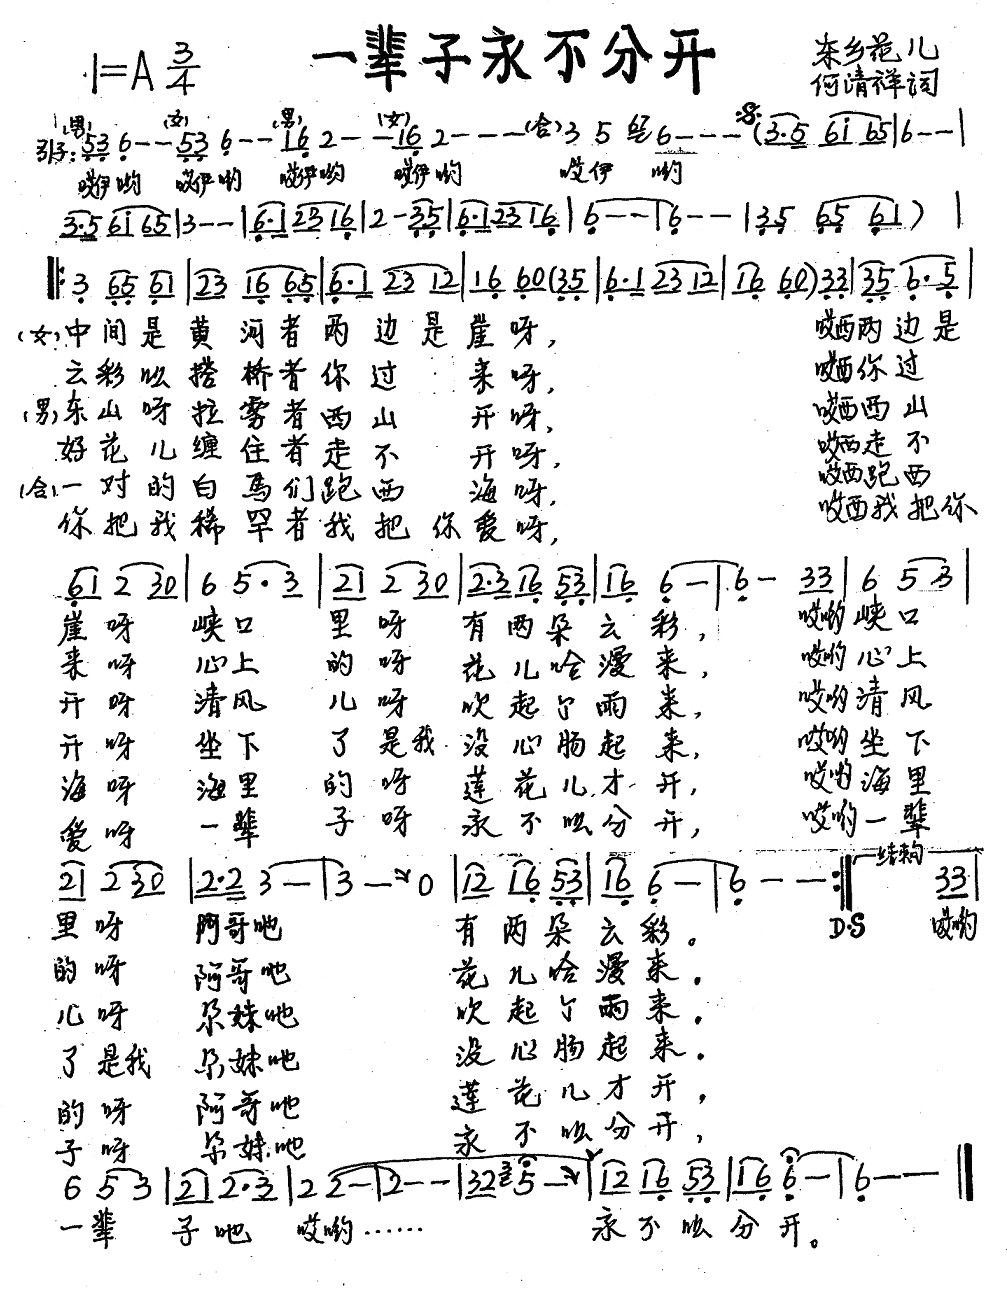 一辈子永不分开
1=A 3/4
东乡花儿
何清祥词
(男) (女) (男) (女) (合)
引子: 53 6 - - 53 6 - - 16 2 - - 16 2 - - - 3 5 6 - - - (3·5 61 65 | 6 - - |
哎伊哟 哎伊哟 哎伊哟 哎伊哟 哎伊 哟
3·5 61 65 | 3 - - | 6·1 23 16 | 2 - 35 | 6·1 23 16 | 6 - - | 6 - - | 35 65 61 ) |
‖: 3 65 61 | 23 16 65 | 6·1 23 12 | 16 60 (35 | 6·1 23 12 | 16 60) 33 | 35 6·5 |
(女) 中间是黄河者两边是崖呀, 哎西两边是
云彩吆搭桥者你过来呀, 哎西你过
(男) 东山呀拉雾者西山开呀, 哎西西山
好花儿缠住者走不开呀, 哎西走不
(合) 一对的白马们跑西海呀, 哎西跑西
你把我稀罕者我把你爱呀, 哎西我把你
61 2 30 | 6 5·3 | 21 2 30 | 2·3 16 53 | 16 6 - | 6 - 33 | 6 5 3 |
崖呀 峡口 里呀 有两朵云彩, 哎哟峡口
来呀 心上 的呀 花儿哈漫来, 哎哟心上
开呀 清风 儿呀 吹起个雨来, 哎哟清风
开呀 坐下 了是我 没心肠起来, 哎哟坐下
海呀 海里 的呀 莲花儿才开, 哎哟海里
爱呀 一辈 子呀 永不吆分开, 哎哟一辈
结束句
21 2 30 | 2·2 3 - | 3 - 0 | 12 16 53 | 16 6 - | 6 - - :‖ 33 |
里呀 阿哥吔 有两朵云彩。 D.S 哎哟
的呀 阿哥吔 花儿哈漫来。
儿呀 尕妹吔 吹起个雨来。
了是我 尕妹吔 没心肠起来。
的呀 阿哥吔 莲花儿才开,
子呀 尕妹吔 永不吆分开,
6 5 3 | 21 2·3 | 2 2 - | 2 - - | 32 5 - | 12 16 53 | 16 6 - | 6 - - ‖
一辈 子吔 哎哟…… 永不吆分开。